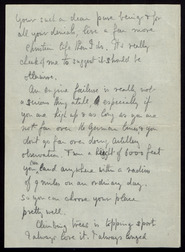 Your such a dear pure being & for
all your denials, live a far more
Christian life than I do. It's really
cheek of me to suggest it should be
otherwise.
An engine failure is really not
a serious thing at all especially if
you are high up & as long as you are
not far over the German lines & you
don't go far over doing artillery
observation. From a height of 6000 feet
you can land anywhere within a radius
of 9 miles on an ordinary day.
So you can choose your place
pretty well.
Climbing trees is topping sport
I always love it. I always longed